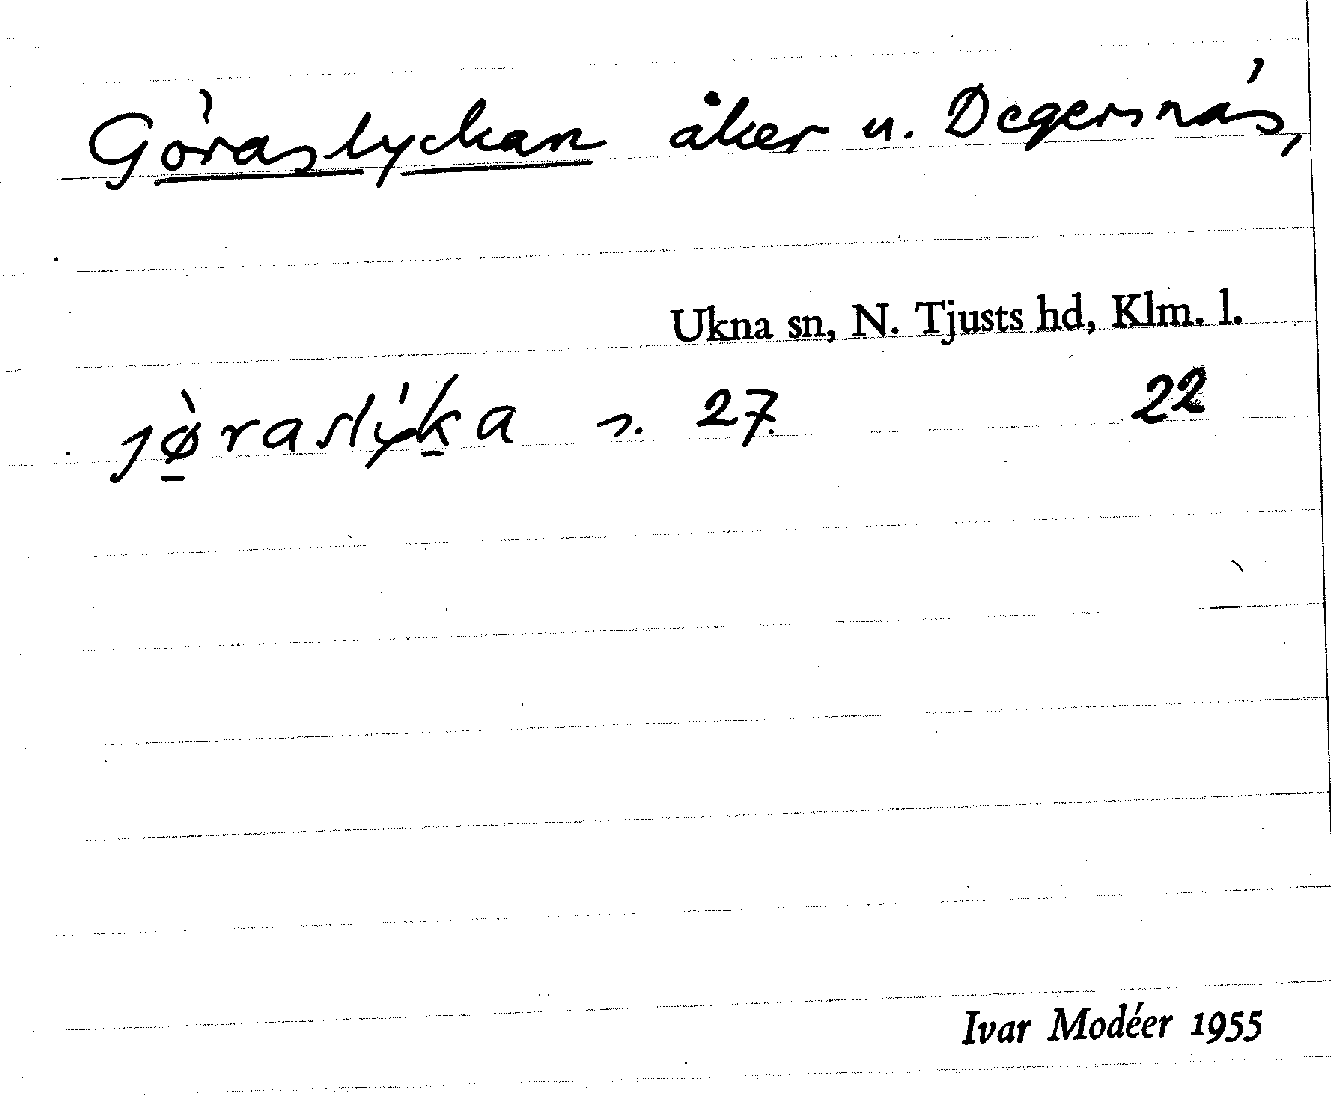 Göraslyckan åker u. Degersnäs,
Ukna sn, N. Tjusts hd, Klm. l.
jø̀raslýka s. 27. 22
Ivar Modéer 1955